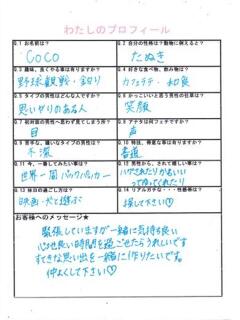 わたしのプロフィール
Q.1 お名前は?
Coco
Q.2 自分の性格は?動物に例えると?
たぬき
Q.3 趣味、良くやる事は有りますか?
野球観戦・釣り
Q.4 好きな食べ物、飲み物は?
カフェラテ・和食
Q.5 タイプの男性はどんな人ですか?
思いやりのある人
Q.6 かっこいいと思う男性の仕草は?
笑顔
Q.7 初対面の男性へ思わず見てしまう所?
目
Q.8 アナタは何フェチですか?
声
Q.9 苦手な、嫌いなタイプの男性は?
不潔
Q.10 特技、得意な事は有りますか?
書道
Q.11 今、一番してみたい事は?
世界一周バックパッカー
Q.12 男性から、されて嬉しい事は?
ハグされたりかわいい
ってゆってくれたり
Q.13 休日の過ごし方は?
映画・犬と遊ぶ
Q.14 リアルガチな・・・性感帯は?
探して下さい♡
お客様へのメッセージ★
緊張していますが一緒に気持ち良い
心地良い時間を過ごせたらうれしいです
すてきな思い出を一緒に作りたいです。
仲よくして下さい♡